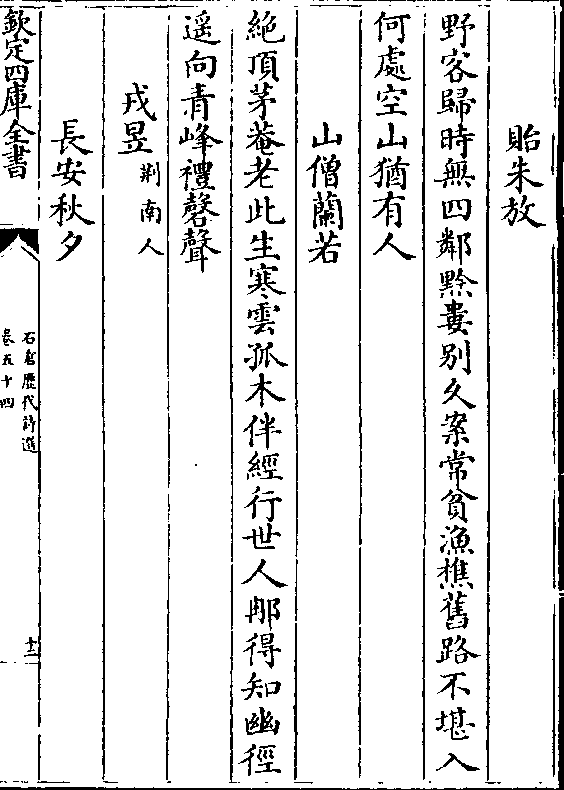 貽朱放
野客歸時無四鄰黔婁別久案常貧漁樵舊路不堪入
何處空山猶有人
山僧蘭若
絶頂茅菴老此生寒雲孤木伴經行世人那得知幽徑
遥向青峰禮磬聲
戎昱荆南人
長安秋夕
欽定四庫全書
石倉歷代詩選
卷五十四
十二